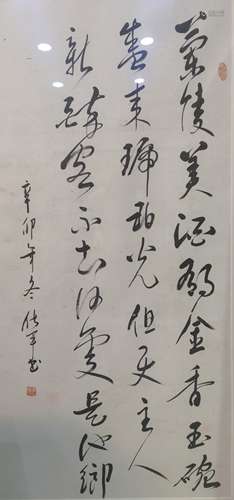 蘭陵美酒郁金香玉碗
盛来琥珀光但使主人
能醉客不知何處是他鄉
辛卯年冬